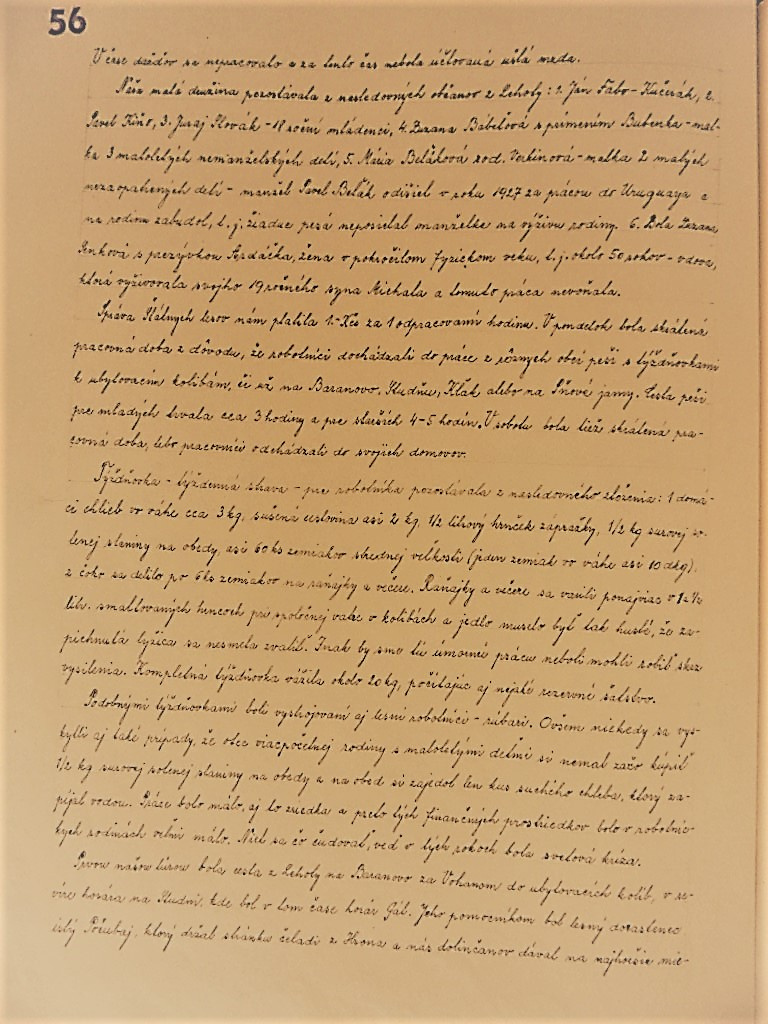 56
V čase dažďov sa nepracovalo a za tento čas nebola účtovaná ušlá mzda.
Naša malá družina pozostávala z nasledovných občanov z Lehoty: 1. Ján Fabo-Kučerák, 2.
Pavel Kiňo, 3. Juraj Slovák - 18 roční mládenci, 4. Zuzana Bábeľová s prímením Bubenka - mat-
ka 3 maloletých nemanželských detí, 5. Mária Beláková rod. Verkinová - matka 2 malých
nezaopatrených detí - manžel Pavel Belák odišiel v roku 1927 za prácou do Uruguaya a
na rodinu zabudol, t.j. žiadne pesá neposielal manželke na výživu rodiny. 6. Bola Zuzana
Senková s prezývkou Serdáčka, žena v pokročilom fyzickom veku, t.j. okolo 50 rokov - vdova,
ktorá vyživovala svojho 19 ročného syna Michala a tomuto práca nevoňala.
Správa Štátnych lesov nám platila 1.- Kčs za 1 odpracovanú hodinu. V pondelok bola skrátená
pracovná doba z dôvodu, že robotníci dochádzali do práce z rôznych obcí peši s týždňovkami
k ubytovacím kolibám, či už na Baranovo, Studňu, Kľak alebo na Sňové jamy. Cesta peši
pre mladých trvala cca 3 hodiny a pre starších 4-5 hodín. V sobotu bola tiež skrátená pra-
covná doba, lebo pracovníci odchádzali do svojich domovov.
Týždňovka - týždenná strava - pre robotníka pozostávala z nasledovného zloženia: 1 domá-
ci chlieb vo váhe cca 3 kg, sušená cestovina asi 2 kg, 1/2 litrový hrnček zápražky, 1/2 kg surovej so-
lenej slaniny na obedy, asi 60 ks zemiakov strednej veľkosti (jeden zemiak vo váhe asi 10 dkg),
z čoho sa delilo po 6 ks zemiakov na raňajky a večere. Raňajky a večere sa varili ponajviac v 1-1/2
litr. smaltovaných hrncoch pri spoločnej vatre v kolibách a jedlo muselo byť tak husté, že za-
pichnutá lyžica sa nesmela zvaliť. Inak by sme tú úmornú prácu neboli mohli robiť skrz
vysilenia. Kompletná týždňovka vážila okolo 20 kg, počítajúc aj nejské rezervné šatstvo.
Podobnými týždňovkami boli vystrojovaní aj lesní robotníci - rúbari. Ovšem niekedy sa vys-
kytli aj také prípady, že otec viacpočetnej rodiny s maloletými deťmi si nemal začo kúpiť
1/2 kg surovej solenej slaniny na obedy a na obed si zajedol len kus suchého chleba, ktorý za-
píjal vodou. Práce bolo málo, aj to zriedka a preto tých finančných prostriedkov bolo v robotníc-
kych rodinách veľmi málo. Niet sa čo čudovať, veď v tých rokoch bola svetová kríza.
Prvou našou túrou bola cesta z Lehoty na Baranovo za Vohanom do ubytovacích kolíb, v re-
víre horára na Studni, kde bol v tom čase horár Gál. Jeho pomocníkom bol lesný dorastenec
istý Počubaj, ktorý držal stránku čeladi z Hrona a nás dolinčanov dával na najhoršie mie-